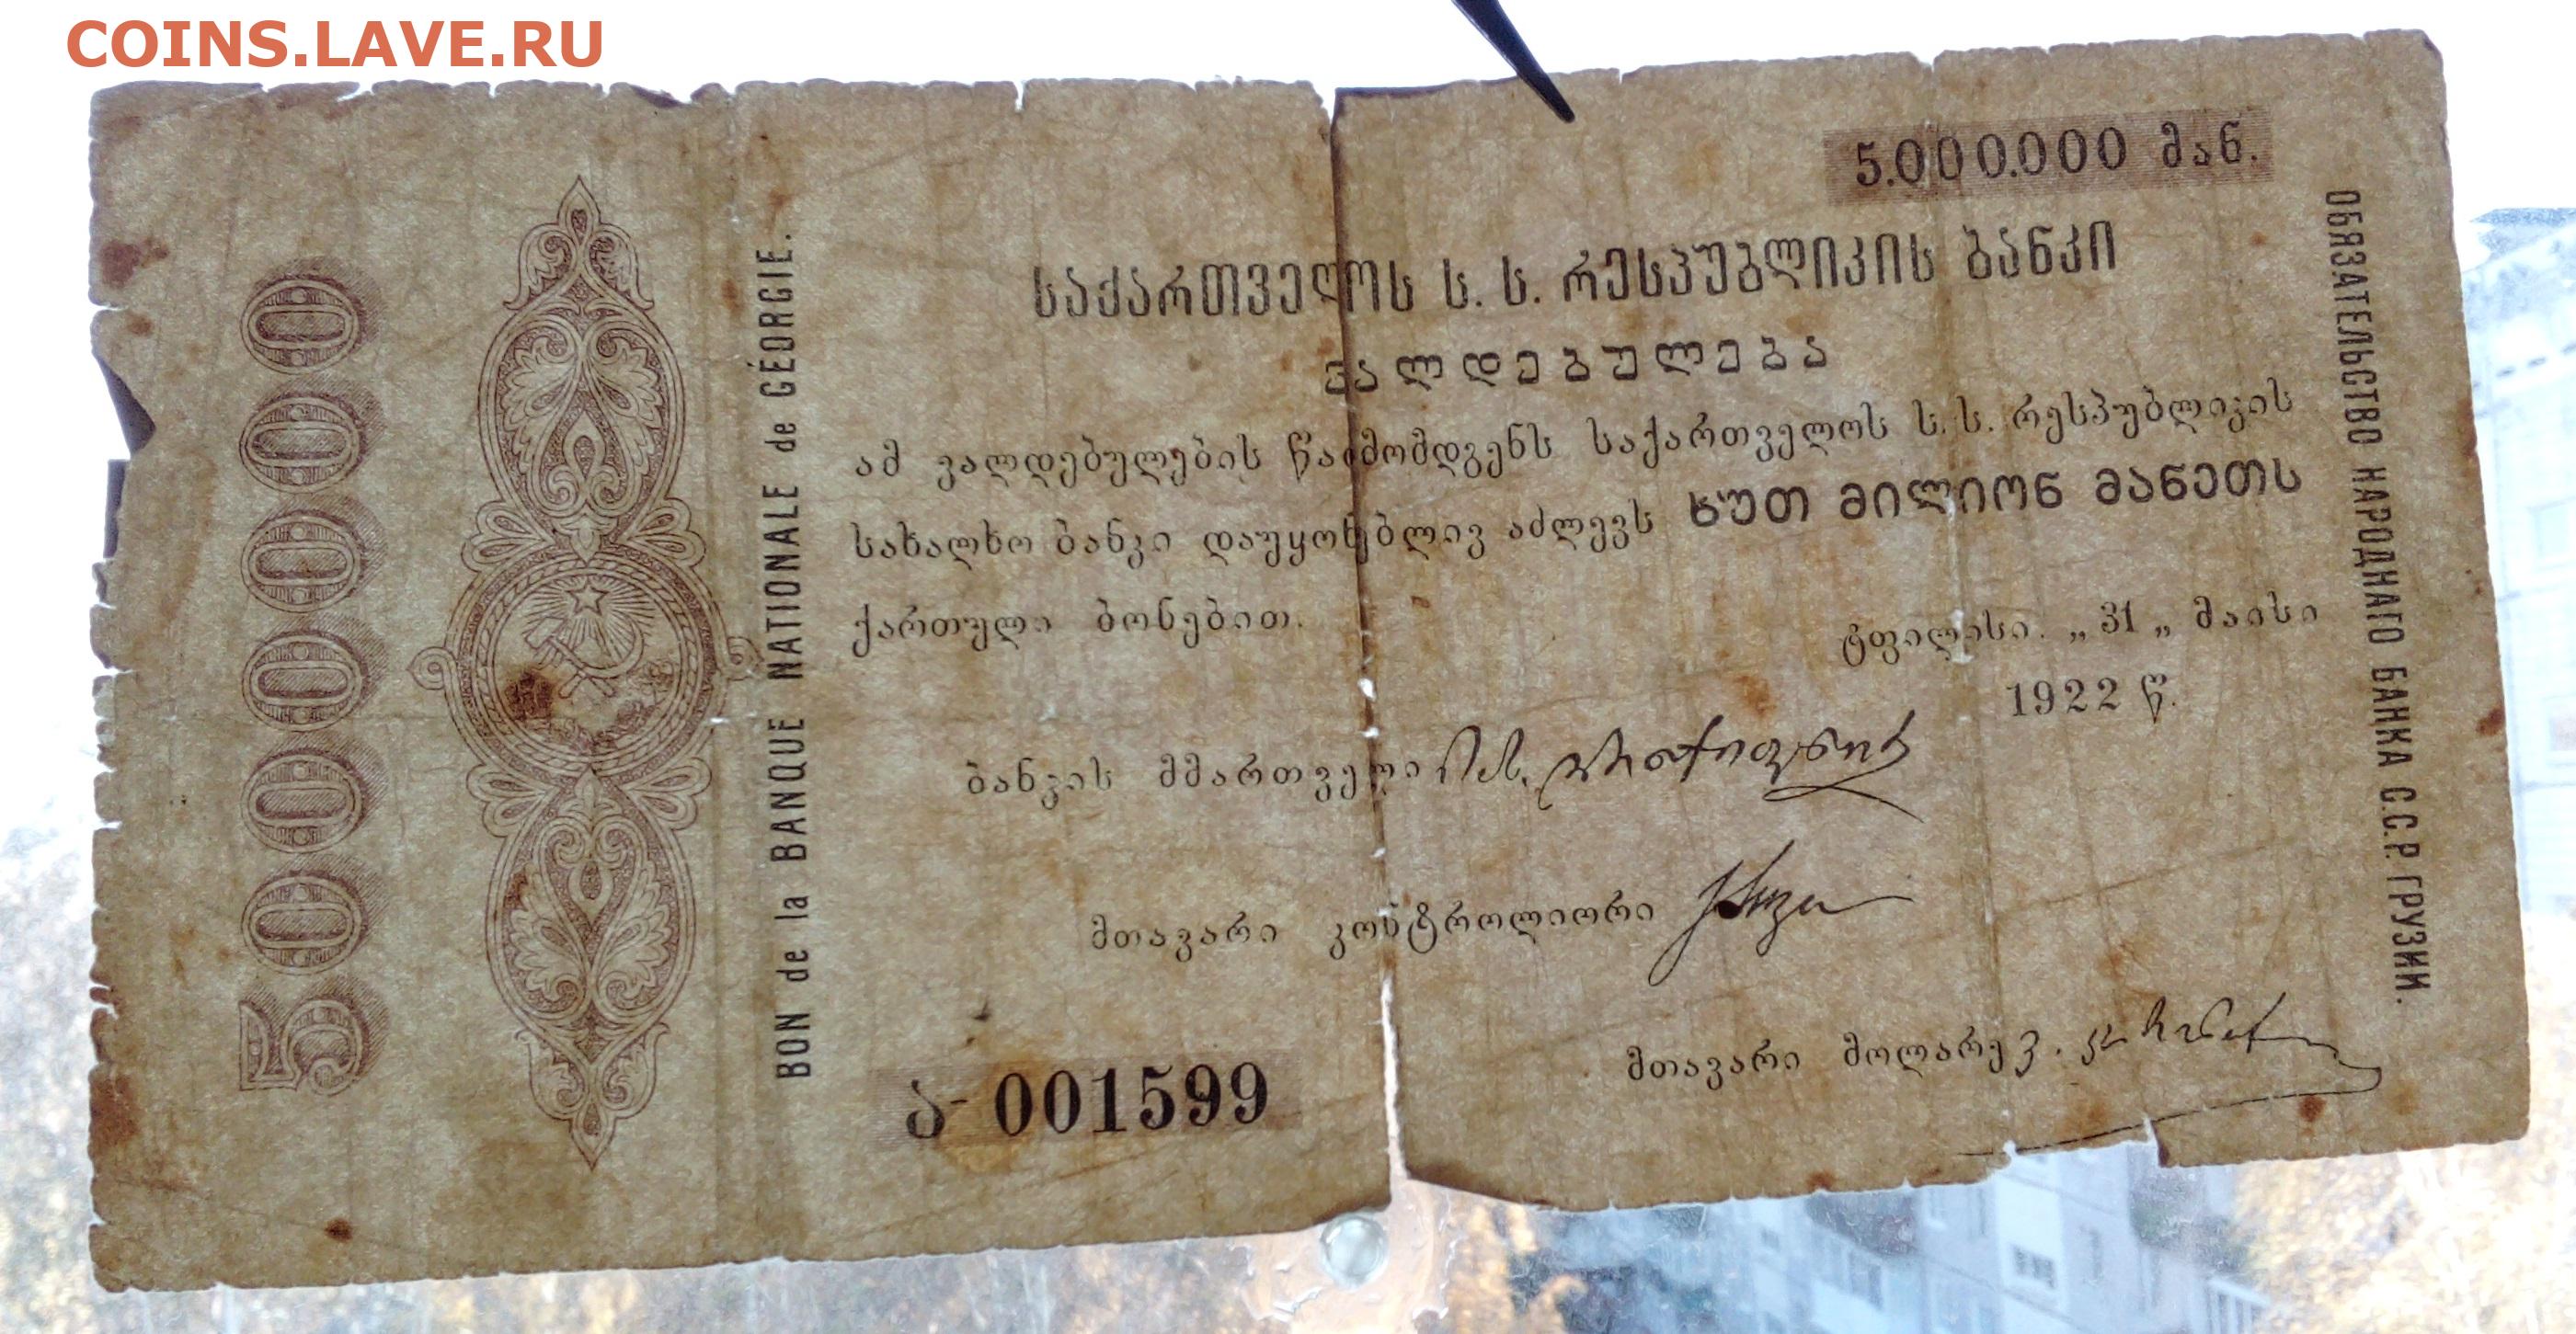 COINS.LAVE.RU
5.000.000 მან.
საქართველოს ს. ს. რესპუბლიკის ბანკი
ვალდებულება
ამ ვალდებულების წარმომდგენს საქართველოს ს. ს. რესპუბლიკის
სახალხო ბანკი დაუყონებლივ აძლევს ხუთ მილიონ მანეთს
ქართული ბონებით.
ტფილისი. „ 31 „ მაისი
1922 წ.
ბანკის მმართველი
მთავარი კონტროლიორი
მთავარი მოლარე
ა- 001599
5000000
BON de la BANQUE NATIONALE de GÉORGIE.
ОБЯЗАТЕЛЬСТВО НАРОДНАГО БАНКА С.С.Р. ГРУЗИИ.